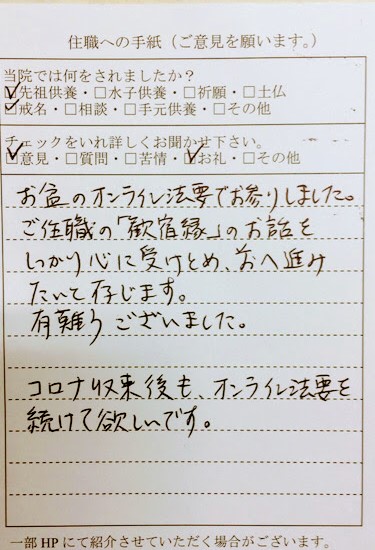 住職への手紙（ご意見を願います。）
当院では何をされましたか？
☑先祖供養・□水子供養・□祈願・□土仏
☑戒名・□相談・□手元供養・□その他
チェックをいれ詳しくお聞かせ下さい。
☑意見・□質問・□苦情・☑お礼・□その他
お盆のオンライン法要でお参りしました。
ご住職の「歓宿縁」のお話を
しっかり心に受けとめ、前へ進み
たいと存じます。
有難うございました。
コロナ収束後も、オンライン法要を
続けて欲しいです。
一部HPにて紹介させていただく場合がございます。